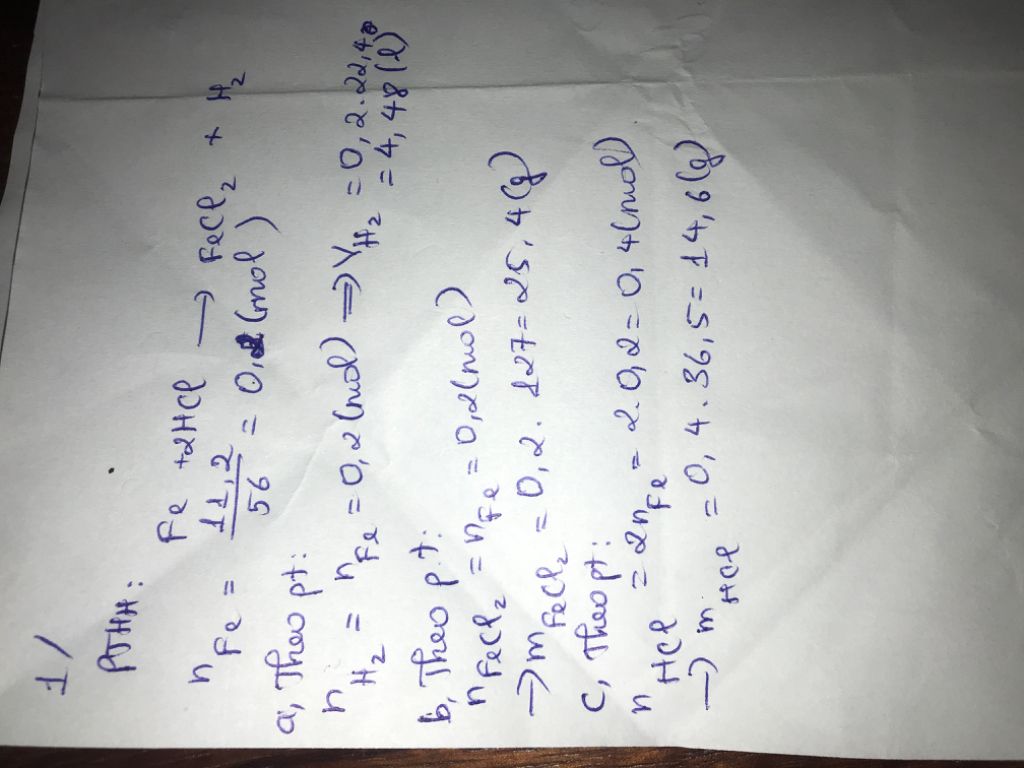 1/
PTHH: Fe +2HCl → FeCl2 + H2
nFe = 11,2/56 = 0,2 (mol)
a, Theo pt:
nH2 = nFe = 0,2 (mol) ⇒ VH2 = 0,2.22,4
= 4,48 (l)
b, Theo pt:
nFeCl2 = nFe = 0,2 (mol)
→ mFeCl2 = 0,2. 127 = 25,4 (g)
c, Theo pt:
nHCl = 2nFe = 2.0,2 = 0,4 (mol)
→ mHCl = 0,4.36,5 = 14,6 (g)